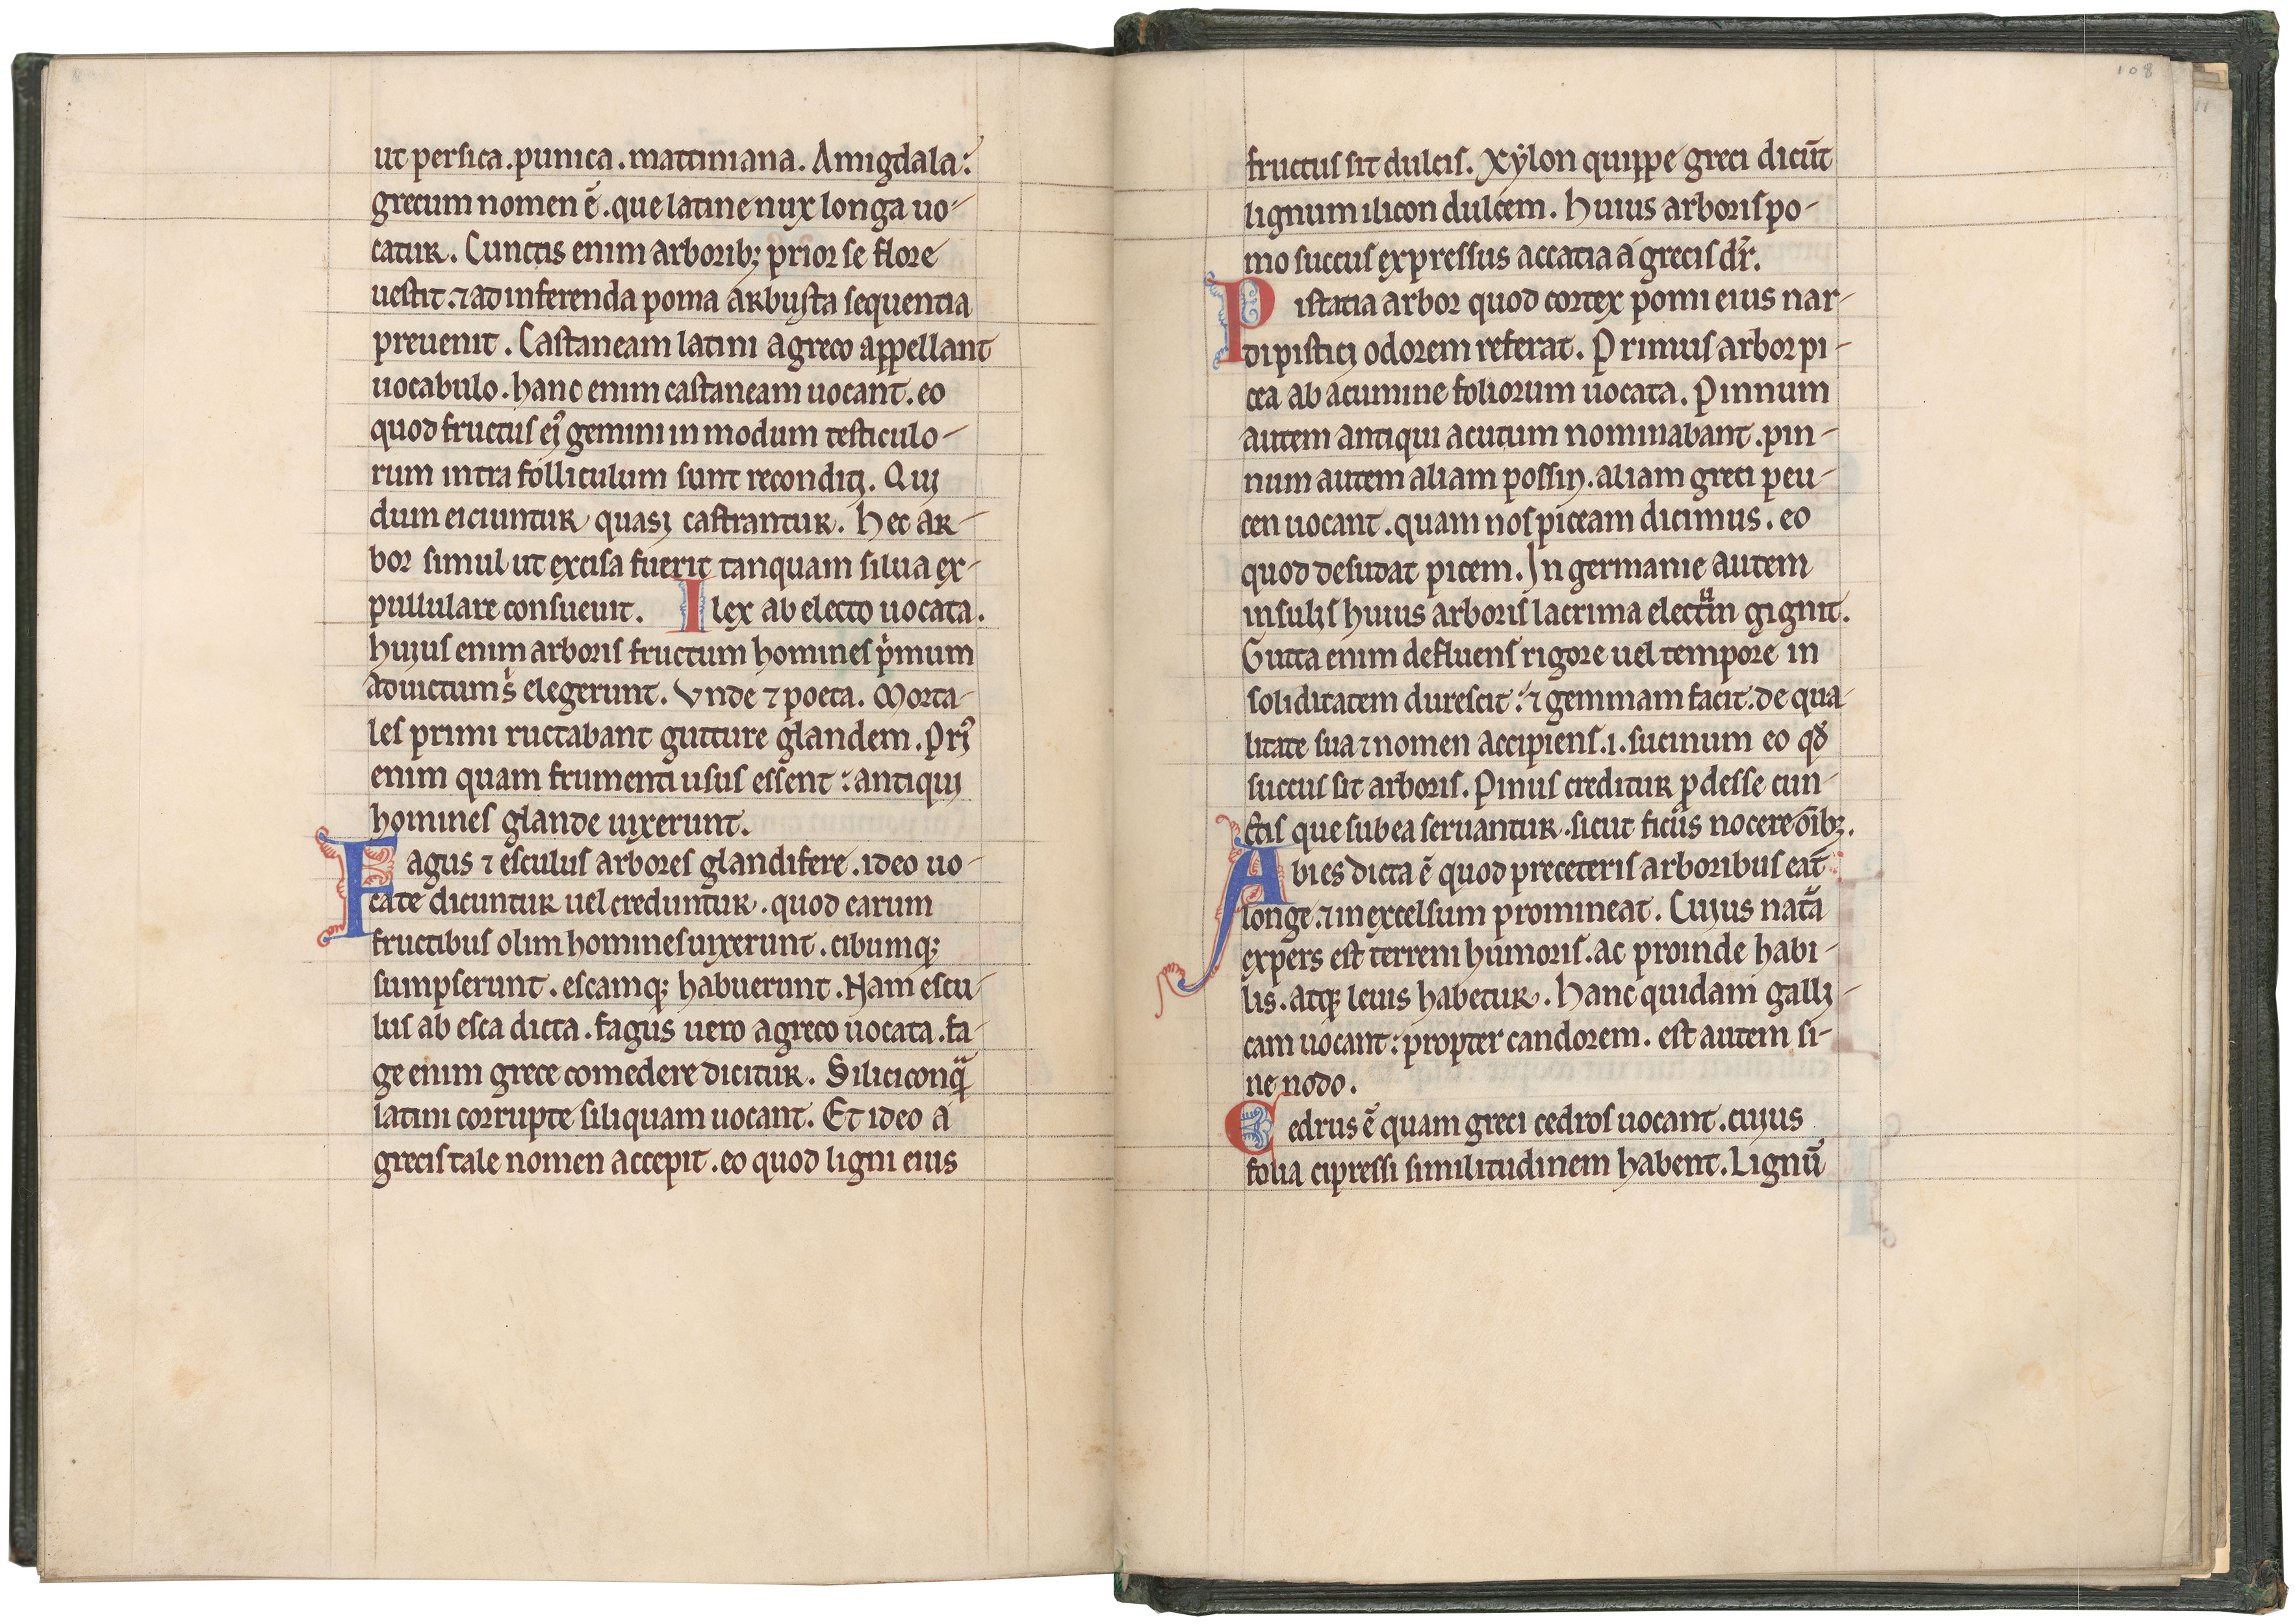 ut persica. punica. mattiniana. Amigdala:
grecum nomen ē. que latine nux longa uo-
catur. Cunctis enim arborib; prior se flore
uestit. ⁊ ad inferenda poma arbusta sequentia
preuenit. Castaneam latini a greco appellant
uocabulo. hanc enim castaneam uocant. eo
quod fructus ej᾽ gemini in modum testiculo-
rum intra folliculum sunt reconditj. Quj
dum eiciuntur quasj castrantur. Hec ar-
bor simul ut excisa fuerit tanquam silua ex-
pullulare consueuit. Ilex ab electo uocata.
hujus enim arboris fructum homines p̍mum
ad uictum s̍ elegerunt. Vnde ⁊ poeta. Morta-
les primi ructabant gutture glandem. Prj᾽
enim quam frumenti usus essent: antiquj
homines glande uixerunt.
Fagus ⁊ esculus arbores glandifere. ideo uo-
cate dicuntur uel creduntur. quod earum
fructibus olim homines uixerunt. cibumq;
sumpserunt. escamq; habuerunt. Nam escu-
lus ab esca dicta. fagus uero a greco uocata. fa-
ge enim grece comedere dicitur. Siliciconqᷓ
latini corrupte siliquam uocant. Et ideo a
grecis tale nomen accepit. eo quod ligni eius
108
11
fructus sit dulcis. Xẏlon quippe greci dicūt
lignum ilicon dulcem. Huius arboris po-
mo succus expressus accatia a grecis dr̄.
Pistatia arbor quod cortex pomi eius nar-
di pisticj odorem referat. Primus arbor pi-
cea ab acumine foliorum uocata. Pinnum
autem antiqui acutum nominabant. pin-
num autem aliam possin. aliam greci peu-
cen uocant. quam nos piceam dicimus. eo
quod desudat picem. In germanie autem
insuljs huius arboris lacrima electᷓm gignit.
Gutta enim defluens rigore uel tempore in
soliditatem durescit: ⁊ gemmam facit. de qua-
litate sua ⁊ nomen accipiens .i. sucinum eo qđ
succus sit arboris. Pinus creditur ꝓdesse cun-
ctis que sub ea seruantur. sicut ficuᷓs nocere om̄ib;.
Abies dicta ē quod pre ceteris arboribus eat
longe. ⁊ in excelsum promineat. Cujus natᷓa
expers est terreni humoris. ac proinde habi-
lis. atq; leuis habetur. Hanc quidam gallj-
cam uocant: propter candorem. est autem si-
ne nodo.
Cedrus ē quam greci cedros uocant. cujus
folia cipressi similitudinem habent. Lignū